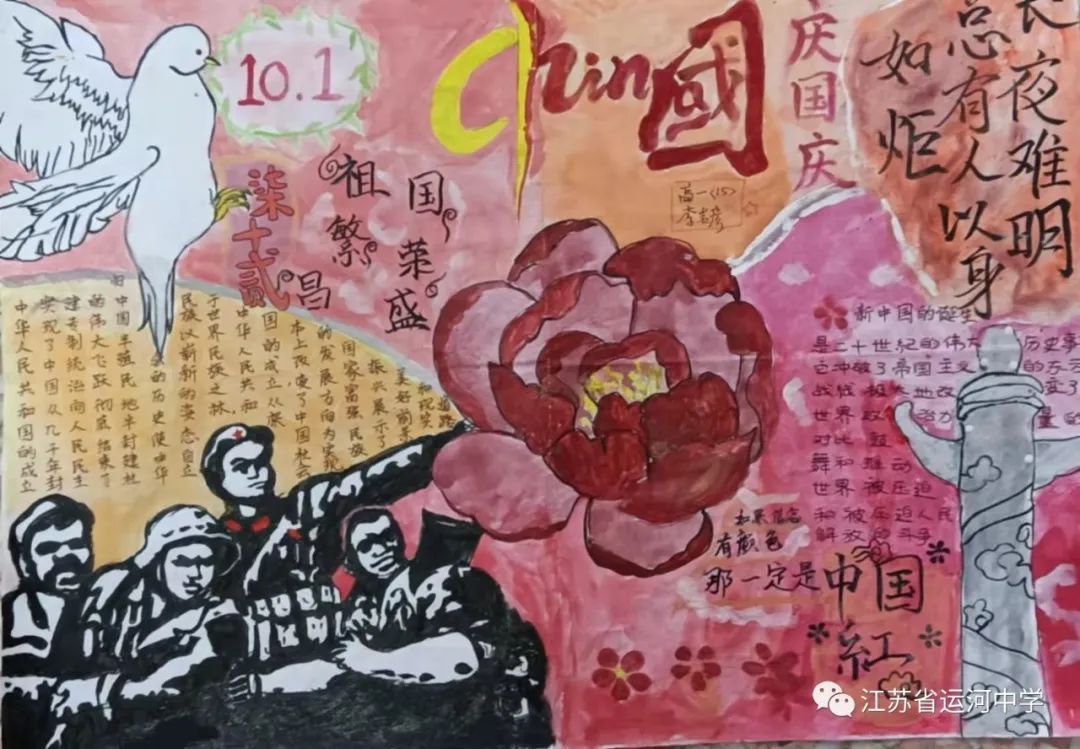 10.1
chin國
庆国庆
长夜难明
总有人以身
如炬
高一(15)
祖国
繁荣
昌盛
柒十贰
中华人民共和国的成立
实现了中国从几千年封
建专制统治向人民民主
的伟大飞跃彻底结束了
旧中国半殖民地半封建社
的历史使中华
民族以崭新的姿态自立
于世界民族之林。
中华人民共和
国的成立从根
本上改变了中国社会
的发展方向为实现
国家富强民族
振兴展示了
美好前景
道路
新中国的诞生
是二十世纪的伟大历史事
它冲破了帝国主义的东方
战线极大地改变了
世界政治力量的
对比鼓
舞和推动
世界被压迫
和被压迫人民
解放的斗争
如果信念
有颜色
那一定是中国
紅
江苏省运河中学